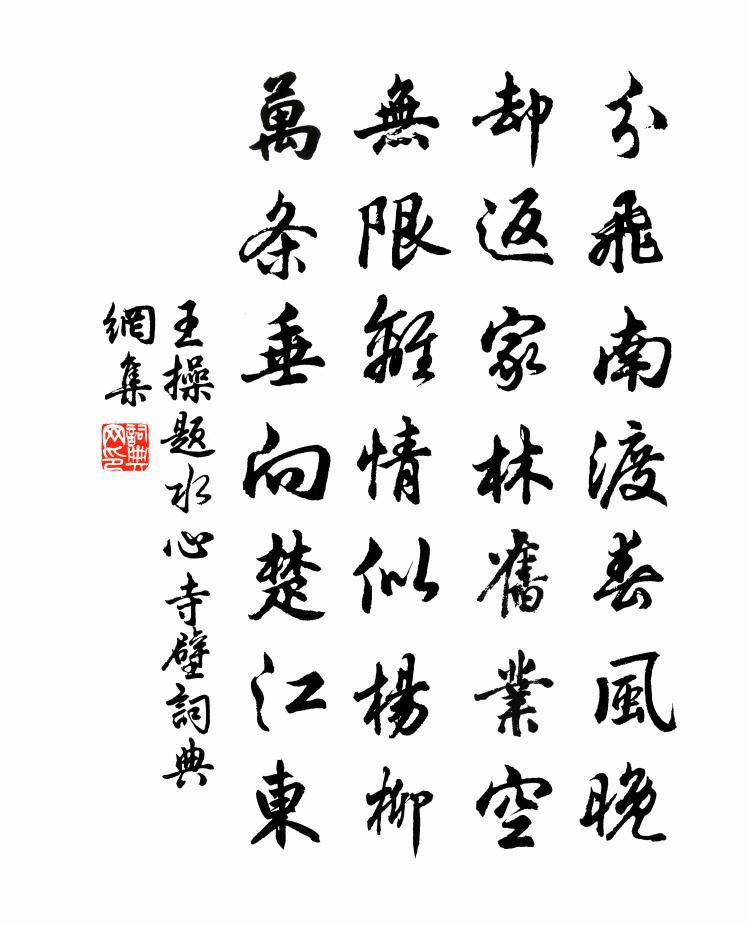 分飛南渡春風晚
却返家林舊業空
無限離情似楊柳
萬条垂向楚江東
王操題水心寺壁詞典
網集
詞典
网印